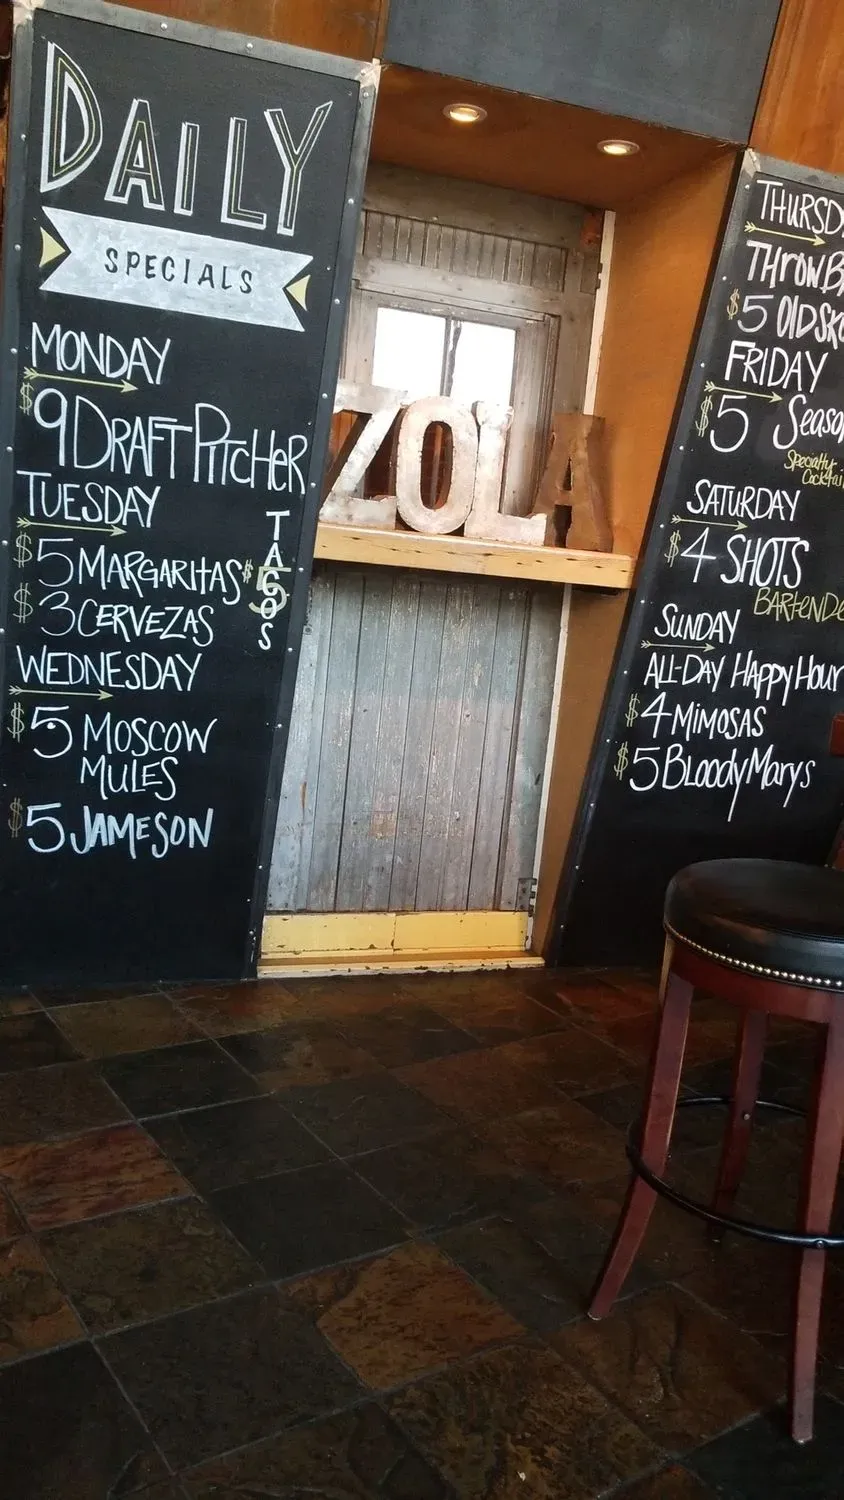 DAILY
SPECIALS
MONDAY
$9 DRAFT PITCHER
TUESDAY
$5 MARGARITAS
$3 CERVEZAS
$5 TACOS
WEDNESDAY
$5 MOSCOW
MULES
$5 JAMESON
ZOLA
THURSD
THROWB
$5 OLDSK
FRIDAY
$5 Seaso
Specialty
Cocktai
SATURDAY
$4 SHOTS
BARTENDE
SUNDAY
ALL-DAY HAPPY HOUR
$4 MIMOSAS
$5 BLOODY MARYS